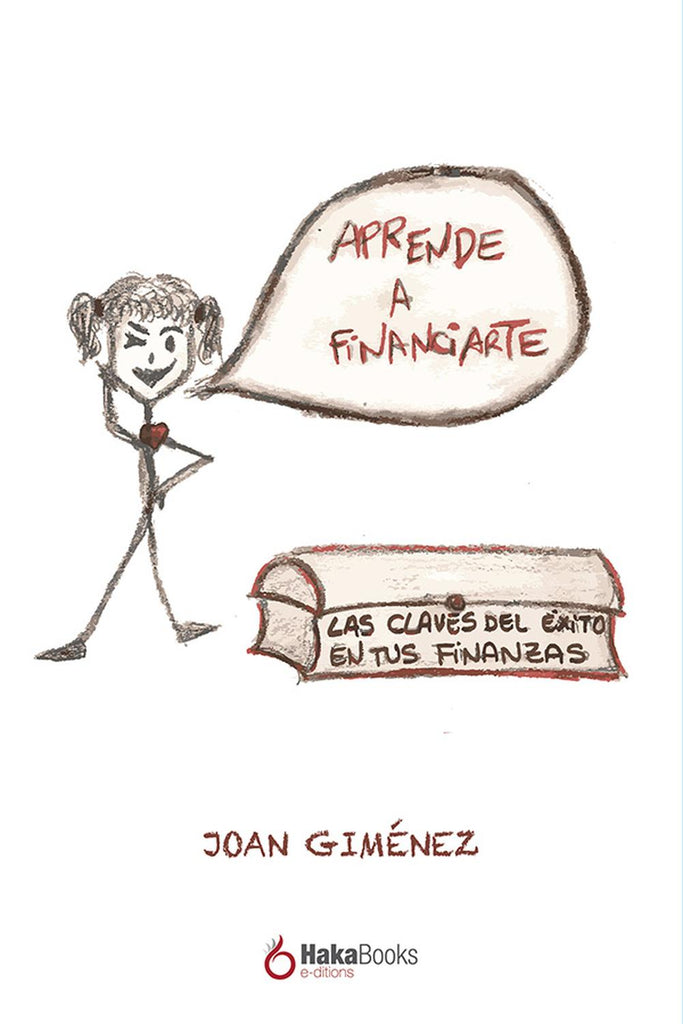 APRENDE
A
FINANCIARTE
LAS CLAVES DEL ÉXITO
EN TUS FINANZAS
JOAN GIMÉNEZ
HakaBooks
e-ditions